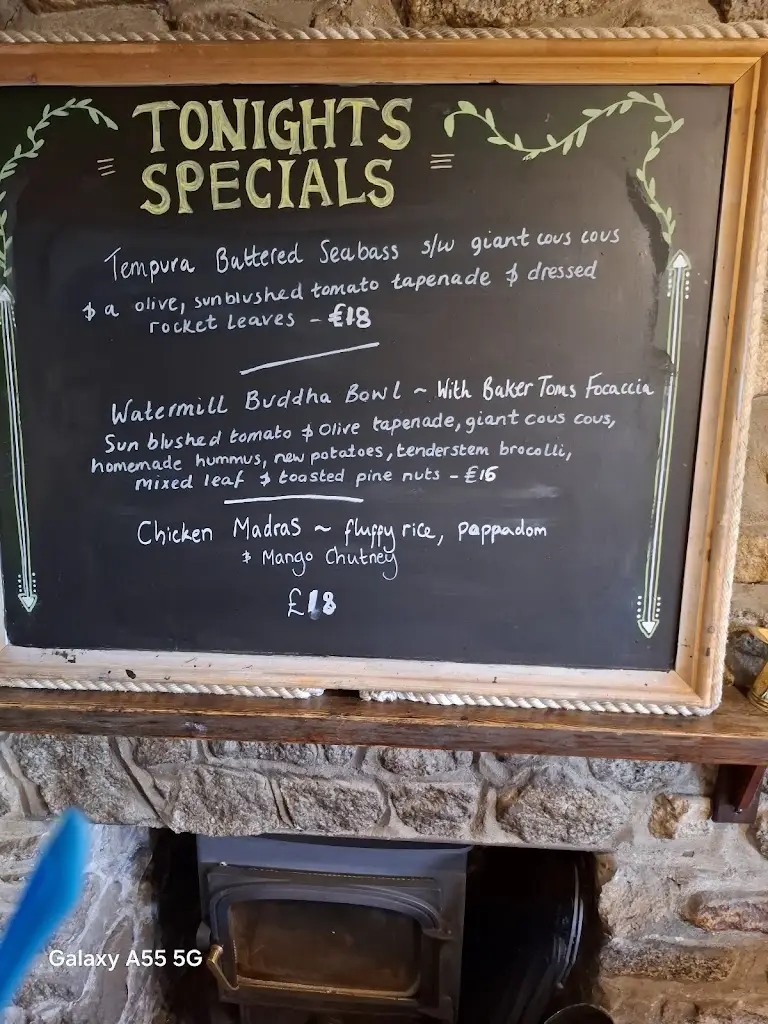 TONIGHTS
SPECIALS
Tempura Battered Seabass s/w giant cous cous
& a olive, sunblushed tomato tapenade & dressed
rocket leaves - £18
Watermill Buddha Bowl ~ With Baker Toms Focaccia
Sun blushed tomato & Olive tapenade, giant cous cous,
homemade hummus, new potatoes, tenderstem brocolli,
mixed leaf & toasted pine nuts - £16
Chicken Madras ~ fluffy rice, poppadom
& Mango Chutney
£18
Galaxy A55 5G